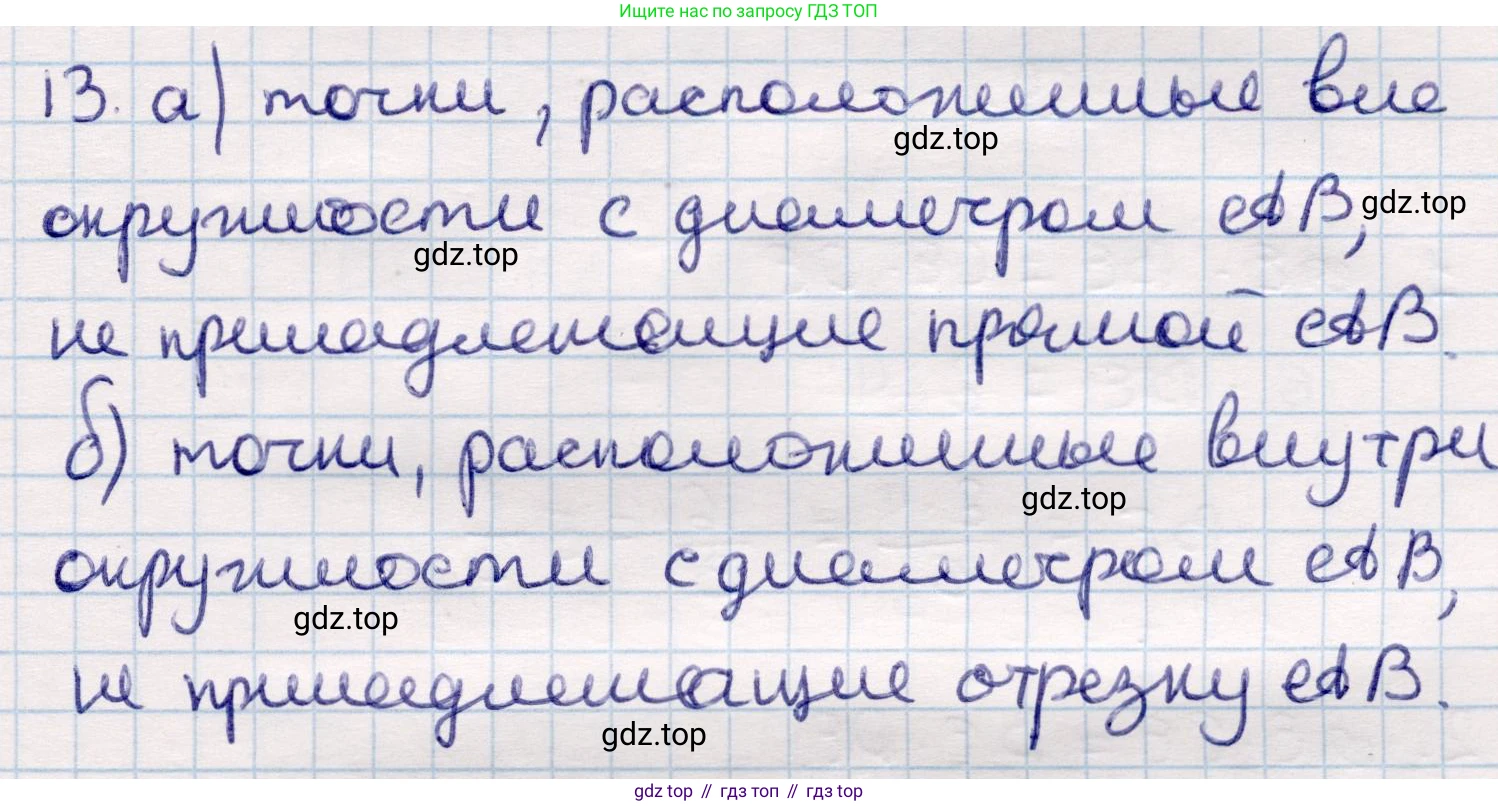 Ищите нас по запросу ГДЗ ТОП
13. а) точки, расположенные вне
gdz.top
окружности с диаметром AB,
gdz.top
gdz.top
не принадлежащие прямой AB.
б) точки, расположенные внутри
gdz.top
окружности с диаметром AB,
gdz.top
не принадлежащие отрезку AB.
gdz.top
gdz top // гдз топ // гдз top